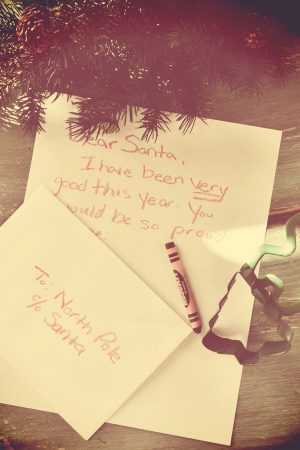 Dear Santa,
I have been very
good this year. You
would be so proud
To: North Pole
c/o Santa